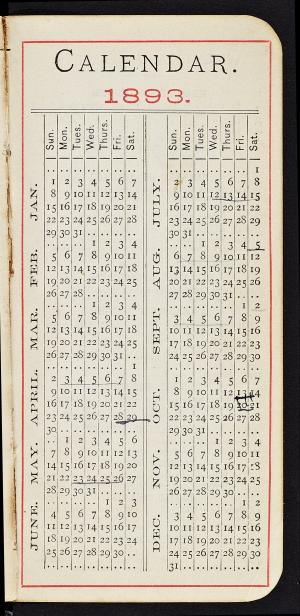 CALENDAR.
1893.
Sun. Mon. Tues. Wed. Thurs. Fri. Sat.
JAN.
1 2 3 4 5 6 7
8 9 10 11 12 13 14
15 16 17 18 19 20 21
22 23 24 25 26 27 28
29 30 31 .. .. .. ..
FEB.
.. .. .. 1 2 3 4
5 6 7 8 9 10 11
12 13 14 15 16 17 18
19 20 21 22 23 24 25
26 27 28 .. .. .. ..
MAR.
.. .. .. 1 2 3 4
5 6 7 8 9 10 11
12 13 14 15 16 17 18
19 20 21 22 23 24 25
26 27 28 29 30 31 ..
APRIL.
.. .. .. .. .. .. 1
2 3 4 5 6 7 8
9 10 11 12 13 14 15
16 17 18 19 20 21 22
23 24 25 26 27 28 29
30 .. .. .. .. .. ..
MAY.
.. 1 2 3 4 5 6
7 8 9 10 11 12 13
14 15 16 17 18 19 20
21 22 23 24 25 26 27
28 29 30 31 .. .. ..
JUNE.
.. .. .. .. 1 2 3
4 5 6 7 8 9 10
11 12 13 14 15 16 17
18 19 20 21 22 23 24
25 26 27 28 29 30 ..
Sun. Mon. Tues. Wed. Thurs. Fri. Sat.
JULY.
.. .. .. .. .. .. 1
2 3 4 5 6 7 8
9 10 11 12 13 14 15
16 17 18 19 20 21 22
23 24 25 26 27 28 29
30 31 .. .. .. .. ..
AUG.
.. .. 1 2 3 4 5
6 7 8 9 10 11 12
13 14 15 16 17 18 19
20 21 22 23 24 25 26
27 28 29 30 31 .. ..
SEPT.
.. .. .. .. .. 1 2
3 4 5 6 7 8 9
10 11 12 13 14 15 16
17 18 19 20 21 22 23
24 25 26 27 28 29 30
OCT.
1 2 3 4 5 6 7
8 9 10 11 12 13 14
15 16 17 18 19 20 21
22 23 24 25 26 27 28
29 30 31 .. .. .. ..
NOV.
.. .. .. 1 2 3 4
5 6 7 8 9 10 11
12 13 14 15 16 17 18
19 20 21 22 23 24 25
26 27 28 29 30 .. ..
DEC.
.. .. .. .. .. 1 2
3 4 5 6 7 8 9
10 11 12 13 14 15 16
17 18 19 20 21 22 23
24 25 26 27 28 29 30
31 .. .. .. .. .. ..